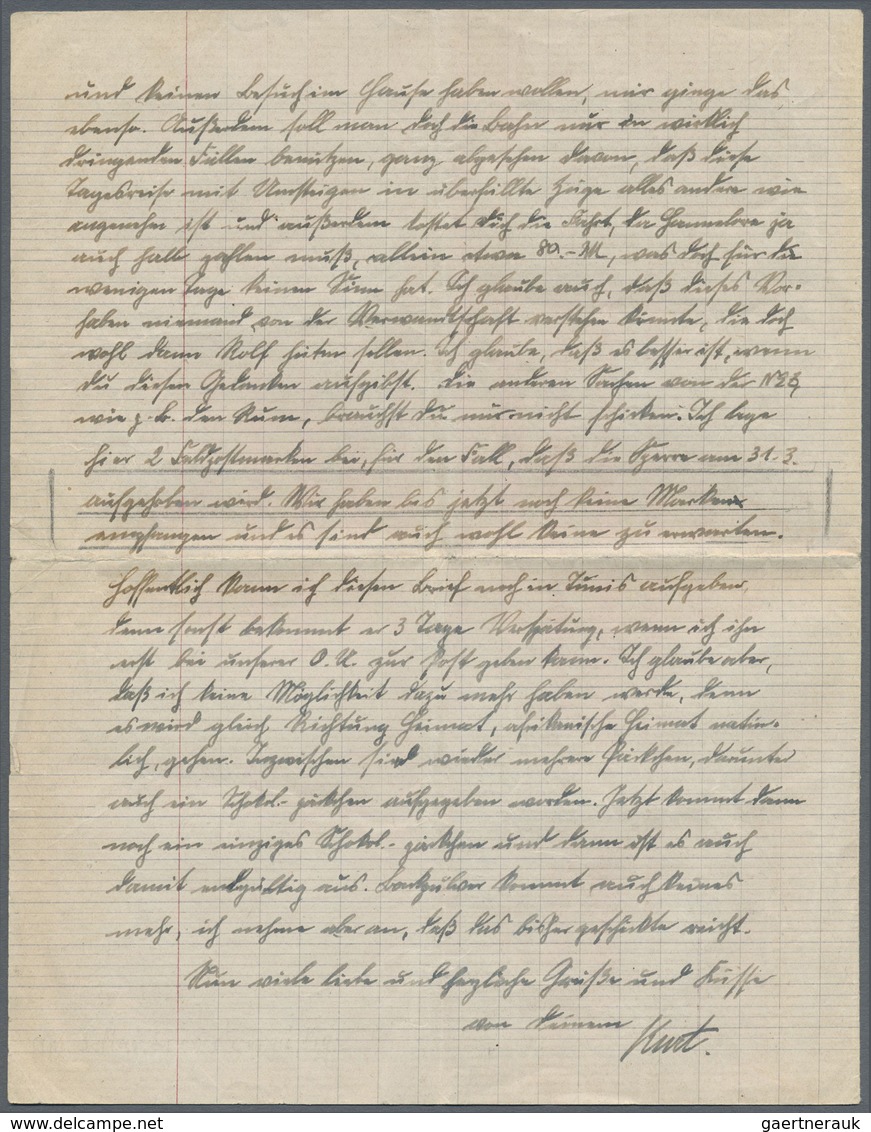 und keinen Besuch im Hause haben wollen, mir ginge das
ebenso. Außerdem soll man doch die Bahn nur in wirklich
dringenden Fällen benützen, ganz abgesehen davon, daß diese
Tagesreise mit Umsteigen in überfüllte Züge alles andere wie
angenehm ist und außerdem kostet dich die Fahrt, da Hannelore ja
auch halb zahlen muß, allein etwa 80.-M, was doch für die
wenigen Tage keinen Sinn hat. Ich glaube auch, daß dieses Vor-
haben niemand von der Verwandtschaft verstehen könnte, die doch
wohl dann Rolf hüten sollen. Ich glaube, daß es besser ist, wenn
du diesen Gedanken aufgibst. Die anderen Sachen von der
wie z.B. den Rum, brauchst du mir nicht schicken. Ich lege
hier 2 Feldpostmarken bei, für den Fall, daß die Sperre am 31.3.
aufgehoben wird. Wir haben bis jetzt noch keine Marken
empfangen und es sind auch wohl keine zu erwarten.
Hoffentlich kann ich diesen Brief noch in Tunis aufgeben,
denn sonst bekommt er 3 Tage Verspätung, wenn ich ihn
erst bei unserer O.U. zur Post geben kann. Ich glaube aber,
daß ich keine Möglichkeit dazu mehr haben werde, denn
es wird gleich Richtung Heimat, afrikanische Heimat natür-
lich, gehen. Inzwischen sind wieder mehrere Päckchen, darunter
auch ein Schokol.-päckchen aufgegeben worden. Jetzt kommt dann
noch ein einziges Schokol.-päckchen und dann ist es auch
damit endgültig aus. Backpulver kommt auch keines
mehr, ich nehme aber an, daß das bisher geschickte reicht.
Nun viele liebe und herzliche Grüße und Küsse
von deinem Kurt.
www.delcampe.net
gaertnerauk